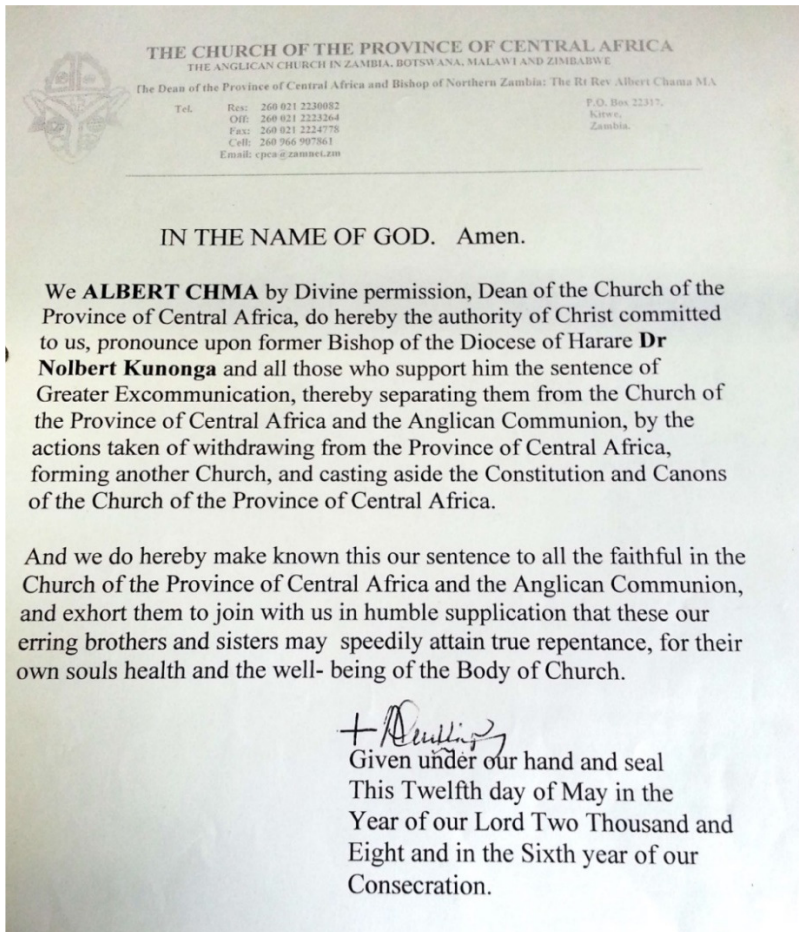 THE CHURCH OF THE PROVINCE OF CENTRAL AFRICA
THE ANGLICAN CHURCH IN ZAMBIA, BOTSWANA, MALAWI AND ZIMBABWE
The Dean of the Province of Central Africa and Bishop of Northern Zambia: The Rt Rev Albert Chama MA
Tel. Res: 260 021 2230082
Off: 260 021 2223264
Fax: 260 021 2224778
Cell: 260 966 907861
Email: cpca@zamnet.zm
P.O. Box 22317,
Kitwe,
Zambia.
IN THE NAME OF GOD. Amen.
We ALBERT CHMA by Divine permission, Dean of the Church of the
Province of Central Africa, do hereby the authority of Christ committed
to us, pronounce upon former Bishop of the Diocese of Harare Dr
Nolbert Kunonga and all those who support him the sentence of
Greater Excommunication, thereby separating them from the Church of
the Province of Central Africa and the Anglican Communion, by the
actions taken of withdrawing from the Province of Central Africa,
forming another Church, and casting aside the Constitution and Canons
of the Church of the Province of Central Africa.
And we do hereby make known this our sentence to all the faithful in the
Church of the Province of Central Africa and the Anglican Communion,
and exhort them to join with us in humble supplication that these our
erring brothers and sisters may speedily attain true repentance, for their
own souls health and the well- being of the Body of Church.
Given under our hand and seal
This Twelfth day of May in the
Year of our Lord Two Thousand and
Eight and in the Sixth year of our
Consecration.